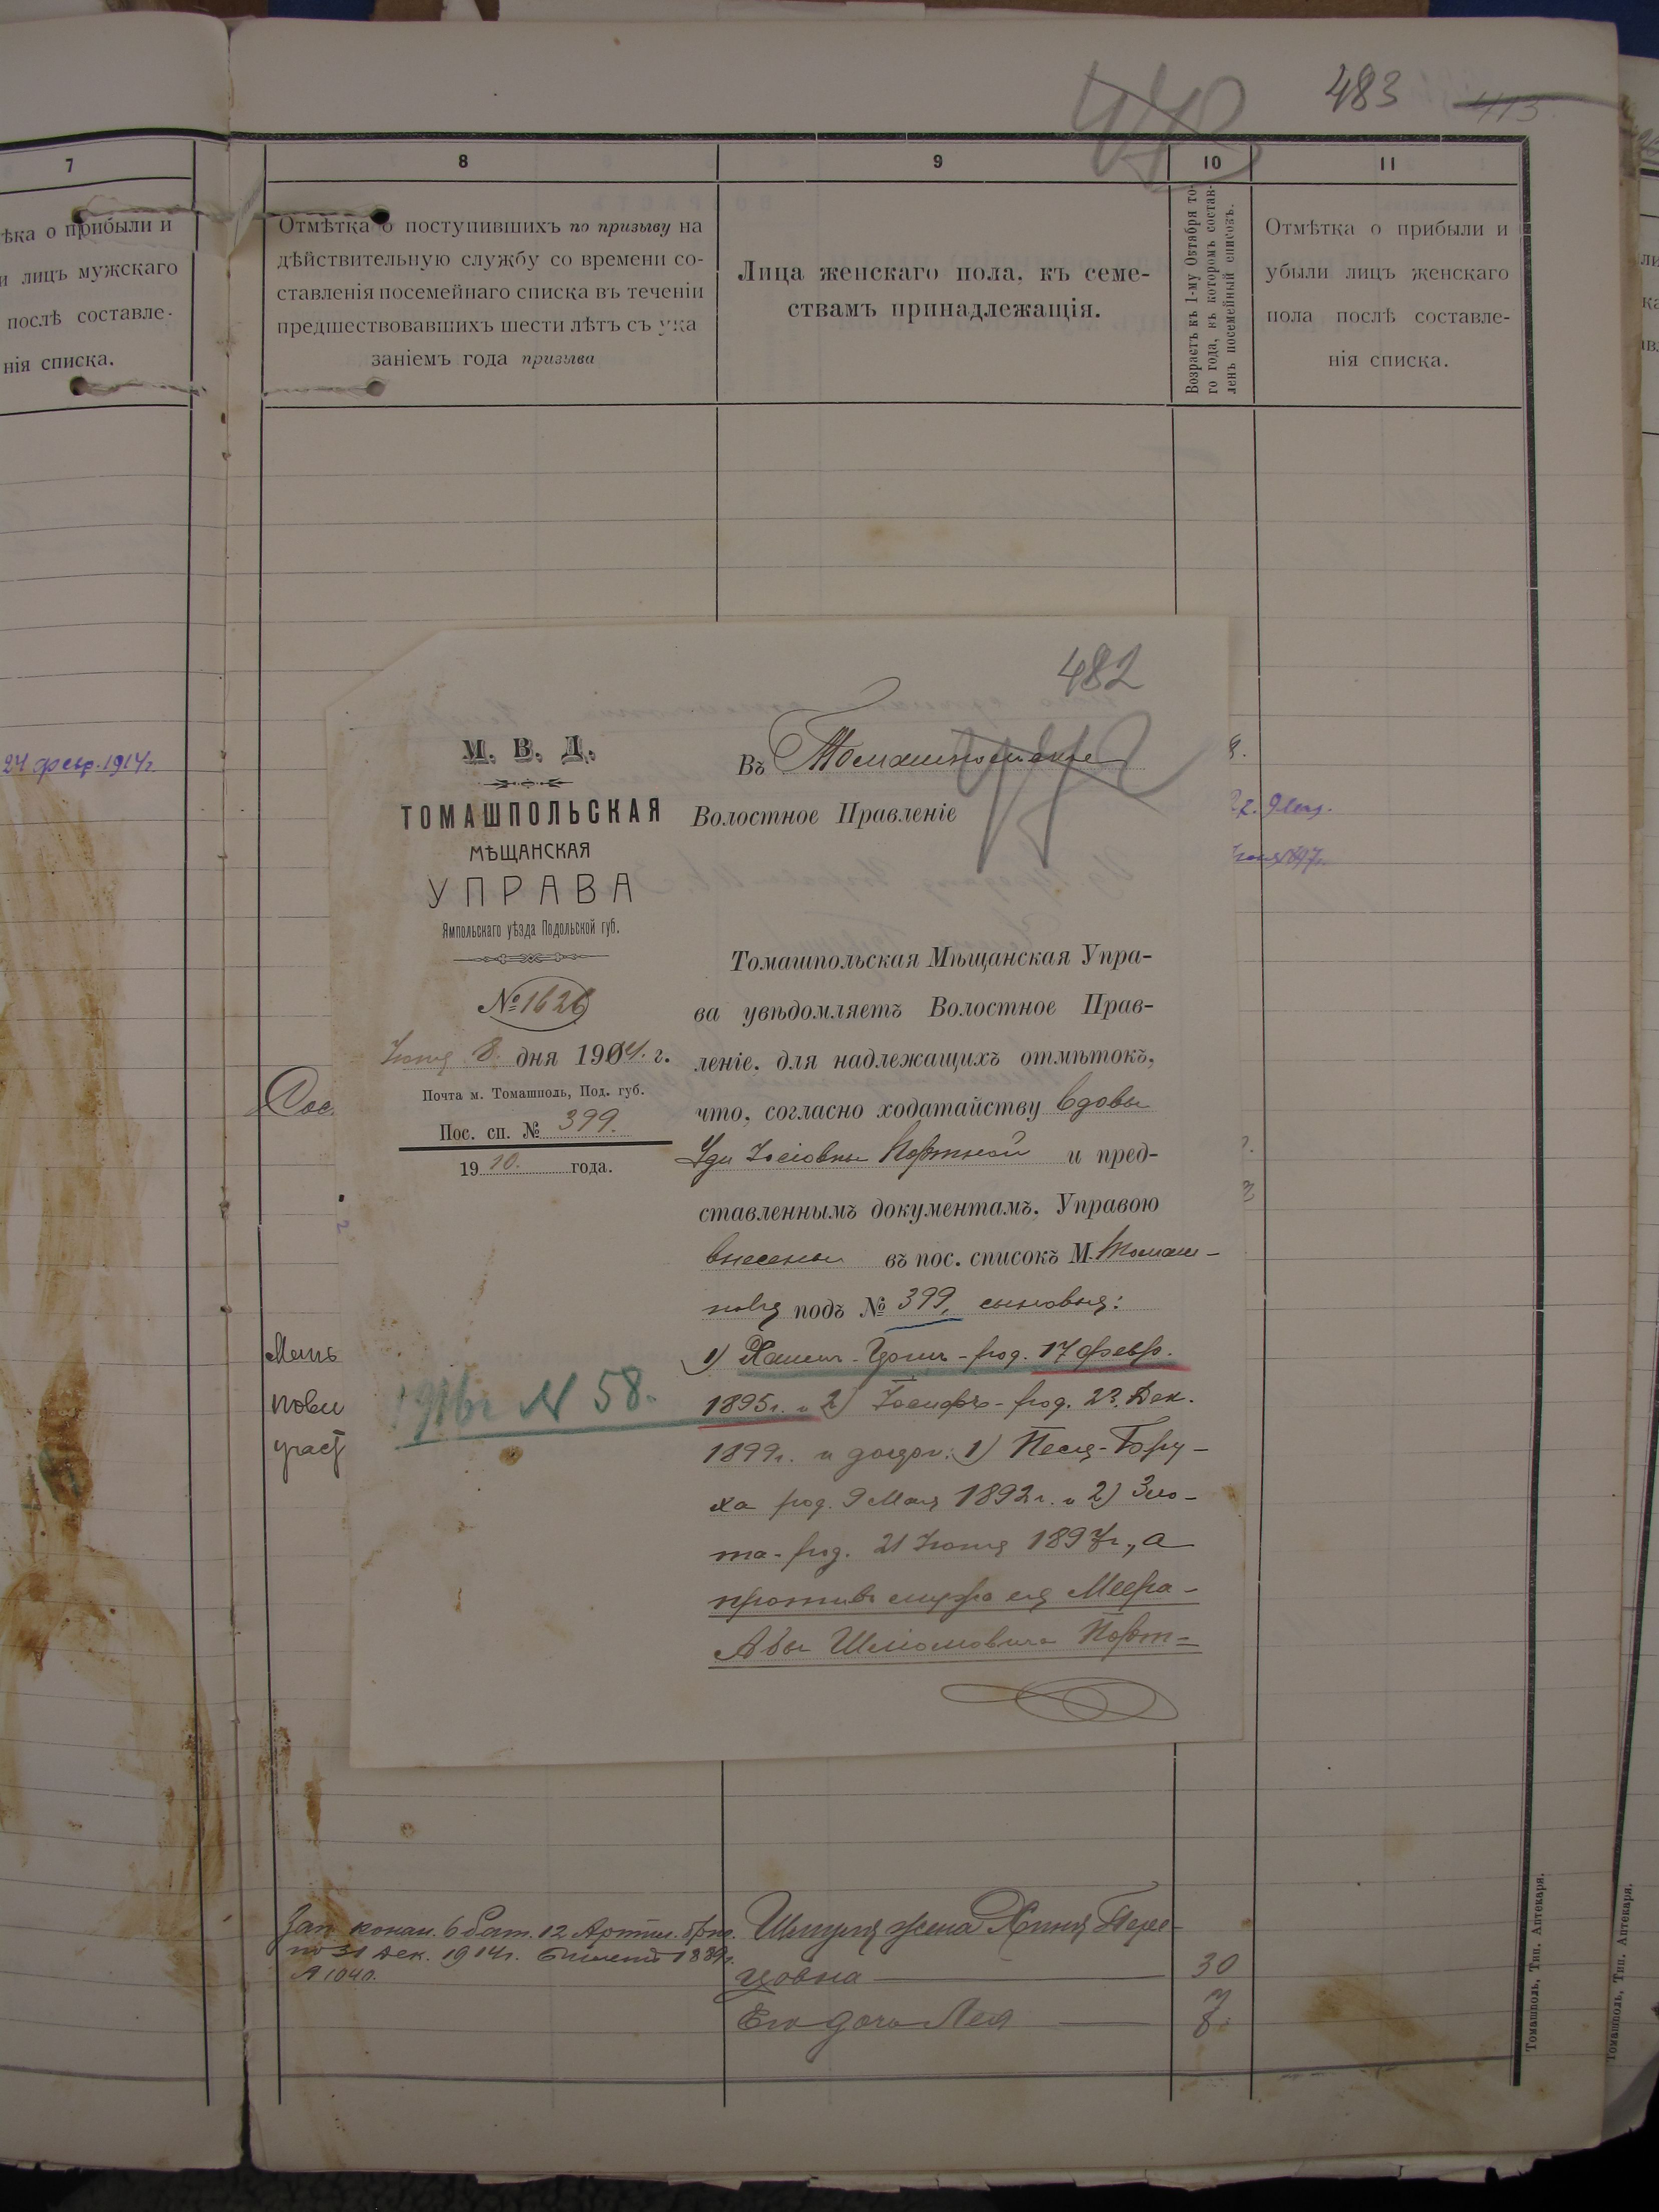 483 413
478
7 8 9 10 11
ѣка о прибыли и
и лицъ мужскаго
послѣ составле-
нія списка.
Отмѣтка о поступившихъ по призыву на
дѣйствительную службу со времени со-
ставленія посемейнаго списка въ теченіи
предшествовавшихъ шести лѣтъ съ ука
заніемъ года призыва
Лица женскаго пола, къ семе-
ствамъ принадлежащія.
Возрастъ къ 1-му Октября то-
го года, въ которомъ состав-
ленъ посемейный списокъ.
Отмѣтка о прибыли и
убыли лицъ женскаго
пола послѣ составле-
нія списка.
24 февр. 1914г.
482
М. В. Д.
ТОМАШПОЛЬСКАЯ
МѢЩАНСКАЯ
УПРАВА
Ямпольскаго уѣзда Подольской губ.
№ 1626
Іюня 8 дня 1904. г.
Почта м. Томашполь, Под. губ.
Пос. сп. № 399.
1910. года.
Въ Томашпольское
Волостное Правленіе
Томашпольская Мѣщанская Упра-
ва увѣдомляетъ Волостное Прав-
леніе, для надлежащихъ отмѣтокъ,
что, согласно ходатайству вдовы
Іосіовны Портной и пред-
ставленнымъ документамъ, Управою
внесены въ пос. списокъ М. Томаш-
поля подъ № 399, сыновья:
1) Хаимъ - род. 17 февр.
1895г. и 2) Іосифъ - род. 23 Дек.
1899г. и дочери: 1) Песя-Бору-
ха род. 9 Мая 1892г. и 2) Зло-
та - род. 21 Іюня 1897г., а
противъ мужа ея Меера-
Абы Шліомовича Порт=
1916г N 58.
Мещ
пови
участ
Зап. 6 бат. 12 Артил. бриг.
по 31 Дек. 1914г. 1889г.
Шмуля жена Хиня
цовна — 30
Его дочь Лея —
Томашполь, Тип. Аптекаря.
Томашполь, Тип. Аптекаря.